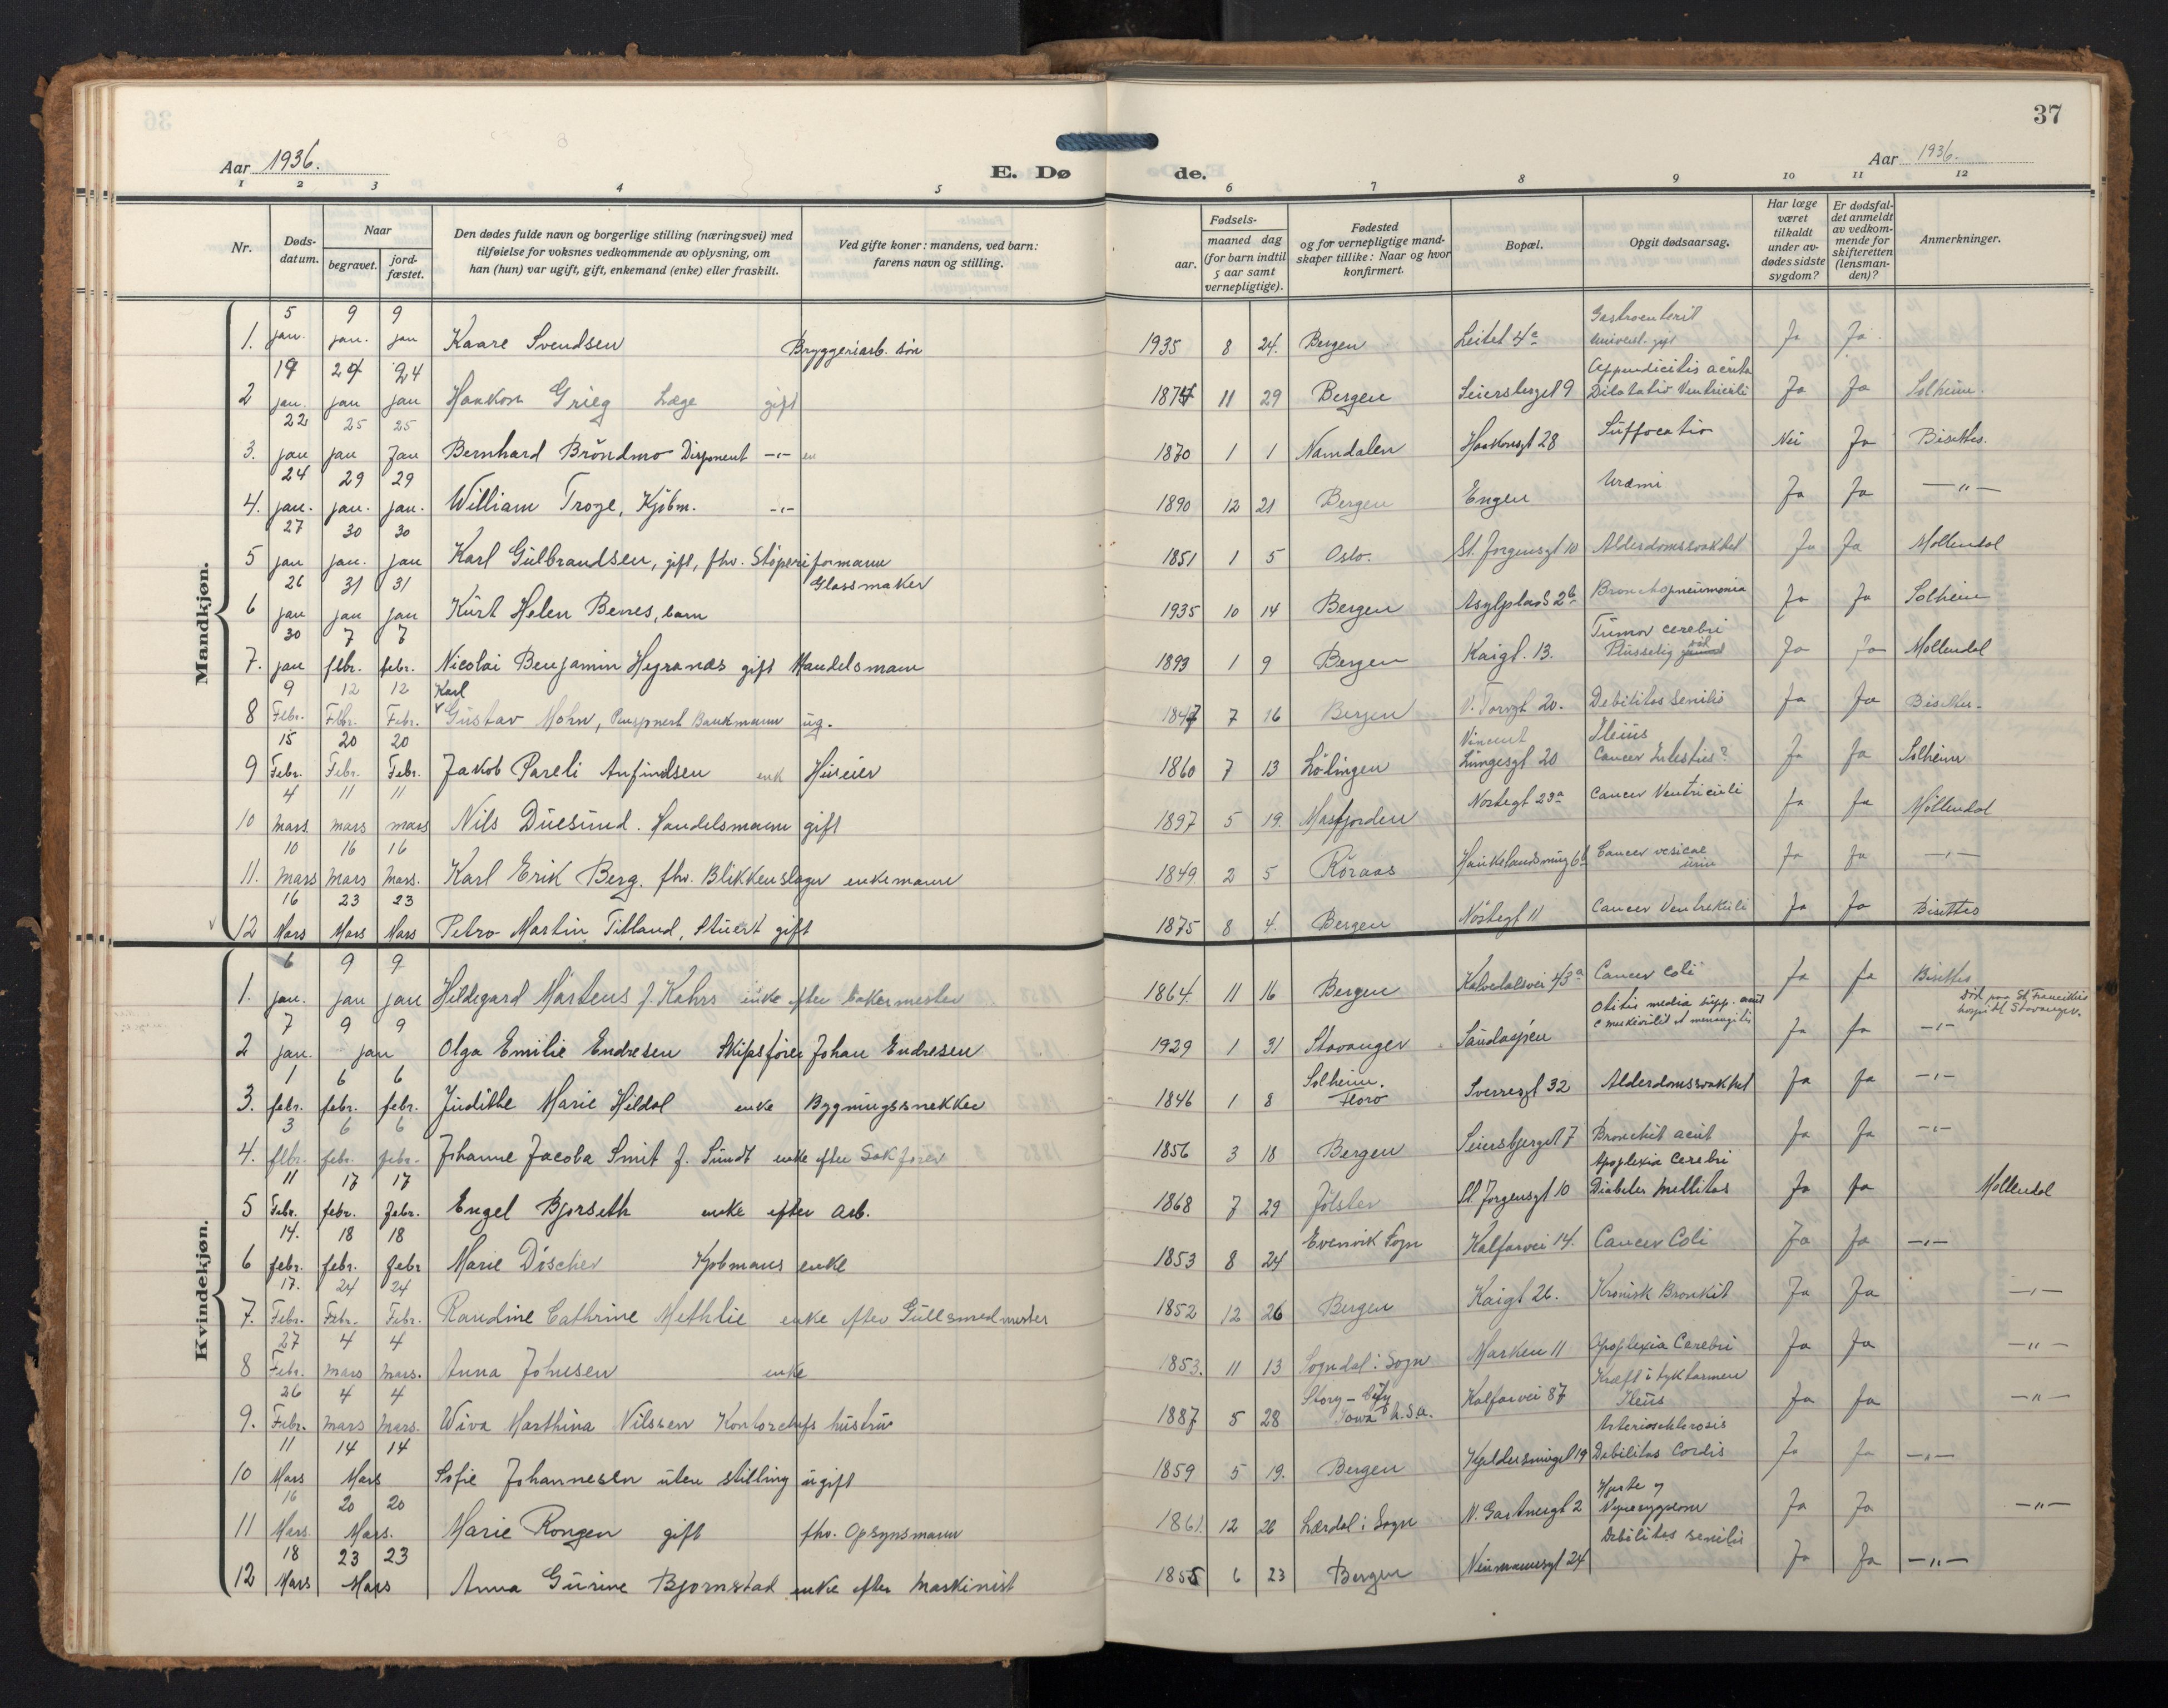 37
Aar 1936. E. Dø de. Aar 1936.
1 2 3 4 5 6 7 8 9 10 11 12
Nr. Døds-datum. Naar begravet. jord-fæstet. Den dødes fulde navn og borgerlige stilling (næringsvei) med tilføielse for voksnes vedkommende av oplysning, om han (hun) var ugift, gift, enkemand (enke) eller fraskilt. Ved gifte koner: mandens, ved barn: farens navn og stilling. Fødsels- aar. maaned dag (for barn indtil 5 aar samt vernepligtige). Fødested og for vernepligtige mandskaper tillike: Naar og hvor konfirmert. Bopæl. Opgit dødsaarsag. Har læge været tilkaldt under avdødes sidste sygdom? Er dødsfaldet anmeldt av vedkommende for skifteretten (lensmanden)? Anmerkninger.
Mandkjøn.
1. 5 jan. 9 jan. 9 jan Kaare Svendsen Bryggeriarb. søn 1935 8 24. Bergen Leitet 4a Gastroenterit Ja Ja.
2 19 jan. 24 jan 24 jan Haakon Grieg Læge gift 1874 11 29 Bergen Seiersberget 9 Appendicitis acuta Dilatatio Ventriculi Ja Ja Solheim.
3. 22 jan 25 jan 25 Jan Bernhard Bröndmo Disponent -"- 1870 1 1 Namdalen Haakonsgt 28 Suffocatio Nei Ja Bisettes.
4. 24 jan. 29 jan. 29 jan. William Troye, Kjöbm. -"- 1890 12 21 Bergen Engen Uræmi Ja Ja -"-
5 27 jan 30 jan. 30 jan Karl Gulbrandsen, gift, fhv. Støperiformann 1851 1 5 Oslo. St. Jørgensgt 10 Alderdomssvakhet Ja Ja Møllendal
6 26 jan 31 jan 31 jan Kurt Helen Benes, barn Glassmaker 1935 10 14 Bergen Asylplass 2b Bronchopneumonia Ja Ja Solheim
7. 30 jan 7 febr. 7 febr. Nicolai Benjamin Hegranæs gift Handelsmann 1893 1 9 Bergen Kaigt. 13. Tumor cerebri Plusselig død Ja Ja Møllendal
8 9 Febr. 12 Febr. 12 Febr. Karl Gustav Mohn, Pensjonert Bankmann ug. 1847 7 16 Bergen V. Torvgt 20. Debilitas Senilis Ja Ja Bisettes.
9 15 Febr. 20 Febr. 20 Febr. Jakob Pareli Anfindsen enk Huseier 1860 7 13 Lödingen Vincent Lungesgt 20 Ileus Cancer Intesties? Ja Ja Solheim
10 4 Mars. 11 mars 11 mars Nils Duesund. Handelsmann gift 1897 5 19. Masfjorden Nøstegt 23a Cancer Ventriculi Ja Ja Möllendal
11. 10 Mars 16 Mars 16 Mars. Karl Erik Berg. fhv. Blikkenslager enkemann 1849 2 5 Röraas Haukelandsmug 6b Cancer vesicae urin Ja Ja -"-
12 16 Mars 23 Mars 23 Mars Petro Martin Titland, Stuert gift 1875 8 4. Bergen Nöstegt 11 Cancer Ventrekuli Ja Ja Bisettes
Kvindekjøn.
1. 6 jan. 9 jan 9 jan Hildegard Martens f. Kahrs enke efter bakermester 1864 11 16 Bergen Kalvedalsvei 43a Cancer coli Ja Ja Bisettes
2 7 jan. 9 9 jan Olga Emilie Endresen Skipsfører Johan Endresen 1929 1 31 Stavanger Sandaasen Otitis media supp. acut Ja Ja -"- Död paa St. Franciskus hospital Stavanger.
3. 1 febr. 6 febr. 6 febr. Judithe Marie Hildal enke Bygningssnekker 1846 1 8 Solheim. Florø Sverresgt 32 Alderdomssvakhet Ja Ja -"-
4. 3 febr. 6 febr. 6 febr. Johanne Jacoba Smit f. Sundt enke efter Sakfører 1856 3 18 Bergen Seiersbjerget 7 Bronchit acut Ja Ja -"-
5 11 Febr. 17 febr. 17 febr. Engel Bjorseth enke efter arb. 1868 7 29 Jølster St. Jorgensgt 10 Apoplexia Cerebri Diabetes mellitus Ja Ja Møllendal
6 14. febr. 18 febr. 18 febr Marie Döscher Kjøbmans enke 1853 8 24 Evenvik Sogn Kalfarvei 14. Cancer Coli Ja Ja -"-
7. 17. Febr. 24 Febr. 24 Febr. Randine Cathrine Methlie enke efter Gullsmedmester 1852 12 26 Bergen Kaigt 26. Kronisk Bronkit Ja Ja -"-
8 27 Febr. 4 Mars 4 Mars. Anna Johnsen enke 1853. 11 13 Sogndal i Sogn Marken 11 Apoplexia Cerebri Ja Ja -"-
9. 26 Febr. 4 Mars 4 Mars. Wiva Marthina Nilssen Kontorchefs hustru 1887 5 28 Story-City Iowa U.S.A. Kalfarvei 87 Kræft i tyktarmen Ileus Ja Ja -"-
10 11 Mars 14 14 Mars Sofie Johannesen uten stilling ugift 1859 5 19. Bergen Kjeldersmuget 19 Arterioschlerosis Debilitas Cordis Ja Ja -"-
11 16 Mars. 20 20 Mars. Marie Rongen gift fhv. Opsynsmann 1861. 12 26 Lærdal i Sogn N. Gartnergt 2 Hjerte og Nyresygdom Ja Ja -"-
12 18 Mars 23 23 Mars Anna Gurine Bjornstad enke efter Maskinist 1855 6 23 Bergen Neumannsgt 24 Debilitas senilis Ja Ja -"-